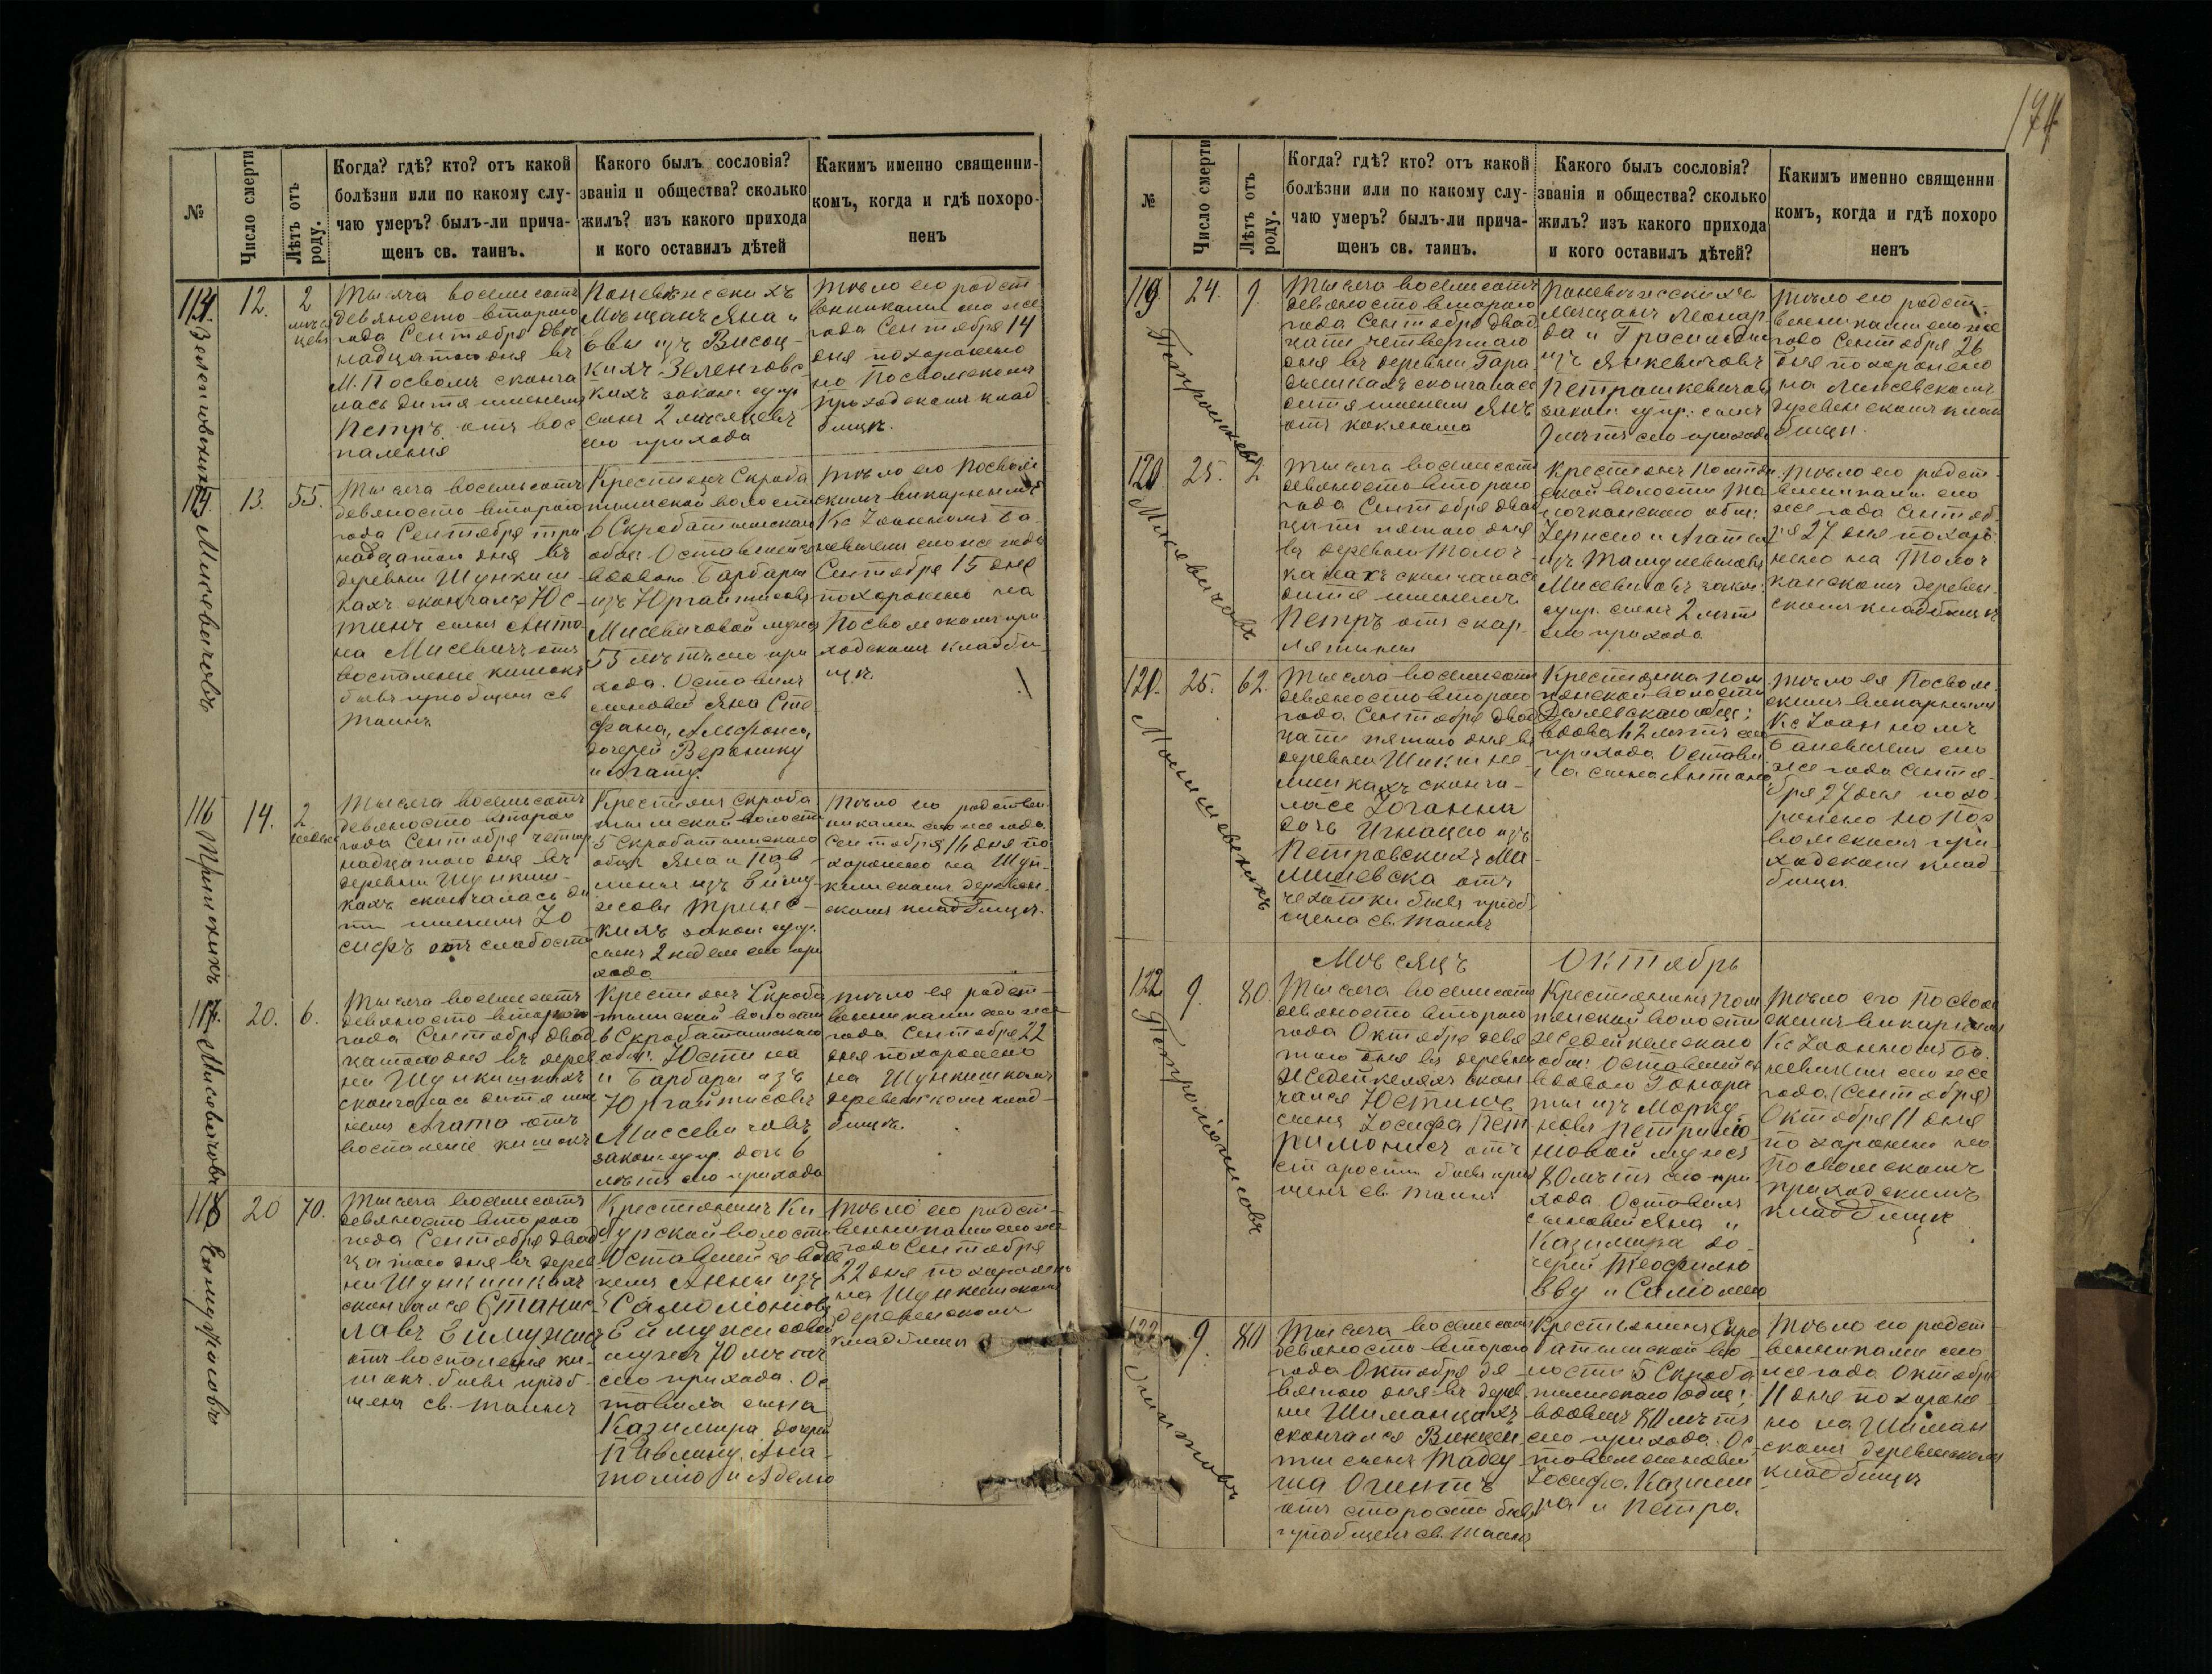 174
№
Число смерти
Лѣтъ отъ роду.
Когда? гдѣ? кто? отъ какой
болѣзни или по какому слу-
чаю умеръ? былъ-ли прича-
щенъ св. таинъ.
Какого былъ сословія?
званія и общества? сколько
жилъ? изъ какого прихода
и кого оставилъ дѣтей
Какимъ именно священни-
комъ, когда и гдѣ похоро-
пенъ
114.
12.
2
Тысяча восемсотъ
девяносто втораго
года Сентября два
надцатаго дня въ
М. Посволѣ сконча
лась дитя именемъ
Петръ отъ вос
паленія
Поневѣжскихъ
Мѣщанъ Яна и
Евы изъ Висоц-
кихъ Зеленговс
кихъ закон. супр
сынъ 2 мѣсяцевъ
сего прихода
Тѣло его родст
венниками сего же
года Сентября 14
дня похоронено
на Посвольскомъ
приходскомъ клад
бищѣ.
115.
Мисевичовъ
13.
55.
Тысяча восемьсотъ
девяносто втораго
года Сентября три
надцатаго дня въ
деревни Шункиш-
кахъ скончался Юс-
тинъ сынъ Анто
на Мисевичъ отъ
воспаленіе кишокъ
бывъ приобщенъ св
таинъ
Крестьянъ Скроба
тишской волости
Скробатишскаго
общ. Оставшейся
вдовою Барбары
изъ Юргайтисовъ
Мисевичовой мужъ
55 лѣтъ сего при
хода. Оставилъ
сыновей Яна Сте
фана, Алфонса,
дочерей Веронику
и Агату.
Тѣло его Посволь
скимъ викарнымъ
Кс Іоанномъ Ба
невичемъ сего же года
Сентября 15 дня
похоронено на
Посвольскомъ при
ходскомъ кладби
щѣ
116
14.
2
Тысяча восемьсотъ
девяносто втораго
года Сентября четыр
надцатаго дня въ
деревни Шункиш-
кахъ скончалась ди
тя именемъ Іо
сифъ отъ слабости
Крестьянъ Скроба
тишской волости
5 Скробатишскаго
общ. Яна и Пав
лины изъ Еймун
жисовъ Тринс-
кихъ закон. супр.
сынъ 2 недели сего при
хода
Тѣло его родствен
никами сего же года
Сентября 16 дня по
хоронено на Шун
кишскомъ деревен
скомъ кладбищѣ.
117.
20.
6.
Тысяча восемсотъ
девяносто втораго
года Сентября двад
цатаго дня въ дерев
ни Шункишкахъ
скончалась дитя име
немъ Агата отъ
воспаленіе кишокъ
Крестьянъ Скроба
тишской волости
Скробатишскаго
общ. Юстина
и Барбары изъ
Юргайтисовъ
Миссевичовъ
закон. супр. дочь 6
лѣтъ сего прихода
Тѣло ея родст-
венниками сего же
года Сентября 22
дня похоронено
на Шункишкомъ
деревенскомъ клад-
бищѣ.
118
20
70.
Тысяча восемсотъ
девяносто втораго
года Сентября двад
цатаго дня въ дерев
ни Шункишкахъ
скончался Станис
лавъ Еймунжисъ
отъ воспаленія ки-
шокъ. бывъ приоб-
щенъ св. таинъ
Крестьянинъ Ки
бурской волости
Оставшейся вдов
Анны изъ
Самоліонисовъ
Еймунжисовой
мужъ 70 лѣтъ
сего прихода. Ос
тавилъ сына
Казимира дочерей
Павлину, Ана
толію и Аделю
Тѣло его родст-
венниками сего же
года Сентября
22 дня похоронено
на Шункишскомъ
деревенскомъ
кладбищѣ
№
Число смерти
Лѣтъ отъ роду.
Когда? гдѣ? кто? отъ какой
болѣзни или по какому слу-
чаю умеръ? былъ-ли прича-
щенъ св. таинъ.
Какого былъ сословія?
званія и общества? сколько
жилъ? изъ какого прихода
и кого оставилъ дѣтей?
Какимъ именно священни
комъ, когда и гдѣ похоро
ненъ
119.
24.
Тысяча восемсотъ
девяносто втораго
года Сентября двад
цать четвертаго
дня въ деревни Гара
дышкахъ скончалась
дитя именемъ Янъ
отъ коклюша
Поневѣжскихъ
Мещанъ Леонар
да и
изъ Янкевичовъ
Петрашкевичовъ
закон. супр. сынъ
лѣтъ сего прихода
Тѣло его родст-
венниками сего же
года Сентября 26
дня похоронено
на
деревенскомъ клад
бищѣ.
120.
Мисевичовъ
25.
2
Тысяча восемсотъ
девяносто втораго
года Сентября двад
цать пятаго дня
въ деревни Толоч
канахъ скончалась
дитя именемъ
Петръ отъ скар
лятины
Крестьянъ
ской волости То
лочканскаго общ.
и Агаты
изъ
Мисевичовъ закон.
супр. сынъ 2 лѣтъ
сего прихода
Тѣло его родст-
венниками сего
же года Сентяб-
ря 27 дня похоро
нено на Толоч
канскомъ деревен
скомъ кладбищѣ
121.
25.
62.
Тысяча восемсотъ
девяносто втораго
года Сентября двад
цать пятаго дня въ
деревни
скончалась Іоганна
дочь Игнація изъ
Петровскихъ Ма
лишевска отъ
чехотки бывъ приоб
щена св. таинъ
Крестьянка Пом
пянской волости
общ.
вдова 62 лѣтъ сего
прихода Остави
ла сына Антона
Тѣло ея Посволь
скимъ викарнымъ
Кс Іоанномъ
Баневичемъ сего
же года Сентя-
бря 27 дня похо
ронено на Пос
вольскомъ при
ходскомъ клад
бищѣ.
Мѣсяцъ Октябрь
122
9.
80.
Тысяча восемсотъ
девяносто втораго
года Октября девя
таго дня въ деревни
Жедейкеляхъ скон
чался Юстинъ
сынъ Іосифа Пет
римонисъ отъ
старости бывъ при
щенъ св. таинъ
Крестьянинъ Пом
пянской волости
Жедейкельскаго
общ. Оставшейся
вдовою Гонора
ты изъ Морку
новъ Петримо
ніовой мужъ
80 лѣтъ сего при
хода Оставилъ
сыновей Яна и
Казимира до-
черей Теофилю
Еву и Саломею
Тѣло его Посволь
скимъ викарнымъ
Кс Іоанномъ Ба
невичемъ сего же
года (Сентября)
Октября 11 дня
похоронено на
Посвольскомъ
приходскимъ
кладбищѣ
9.
80
Тысяча восемсотъ
девяносто втораго
года Октября де
вятаго дня въ дерев
ни Шиманцахъ
скончался Винцен
тый сынъ Тадеу
ша Огинтъ
отъ старости бывъ
приобщенъ св. таинъ
Крестьянинъ Скро
батишской во
лости 5 Скроба
тишскаго общ.
вдовецъ 80 лѣтъ
сего прихода. Ос
тавилъ сыновей
Іосифа, Казими
ра и Петра.
Тѣло его родст
венниками сего
же года Октября
11 дня похороне
но на Шиман
скомъ деревенскомъ
кладбищѣ